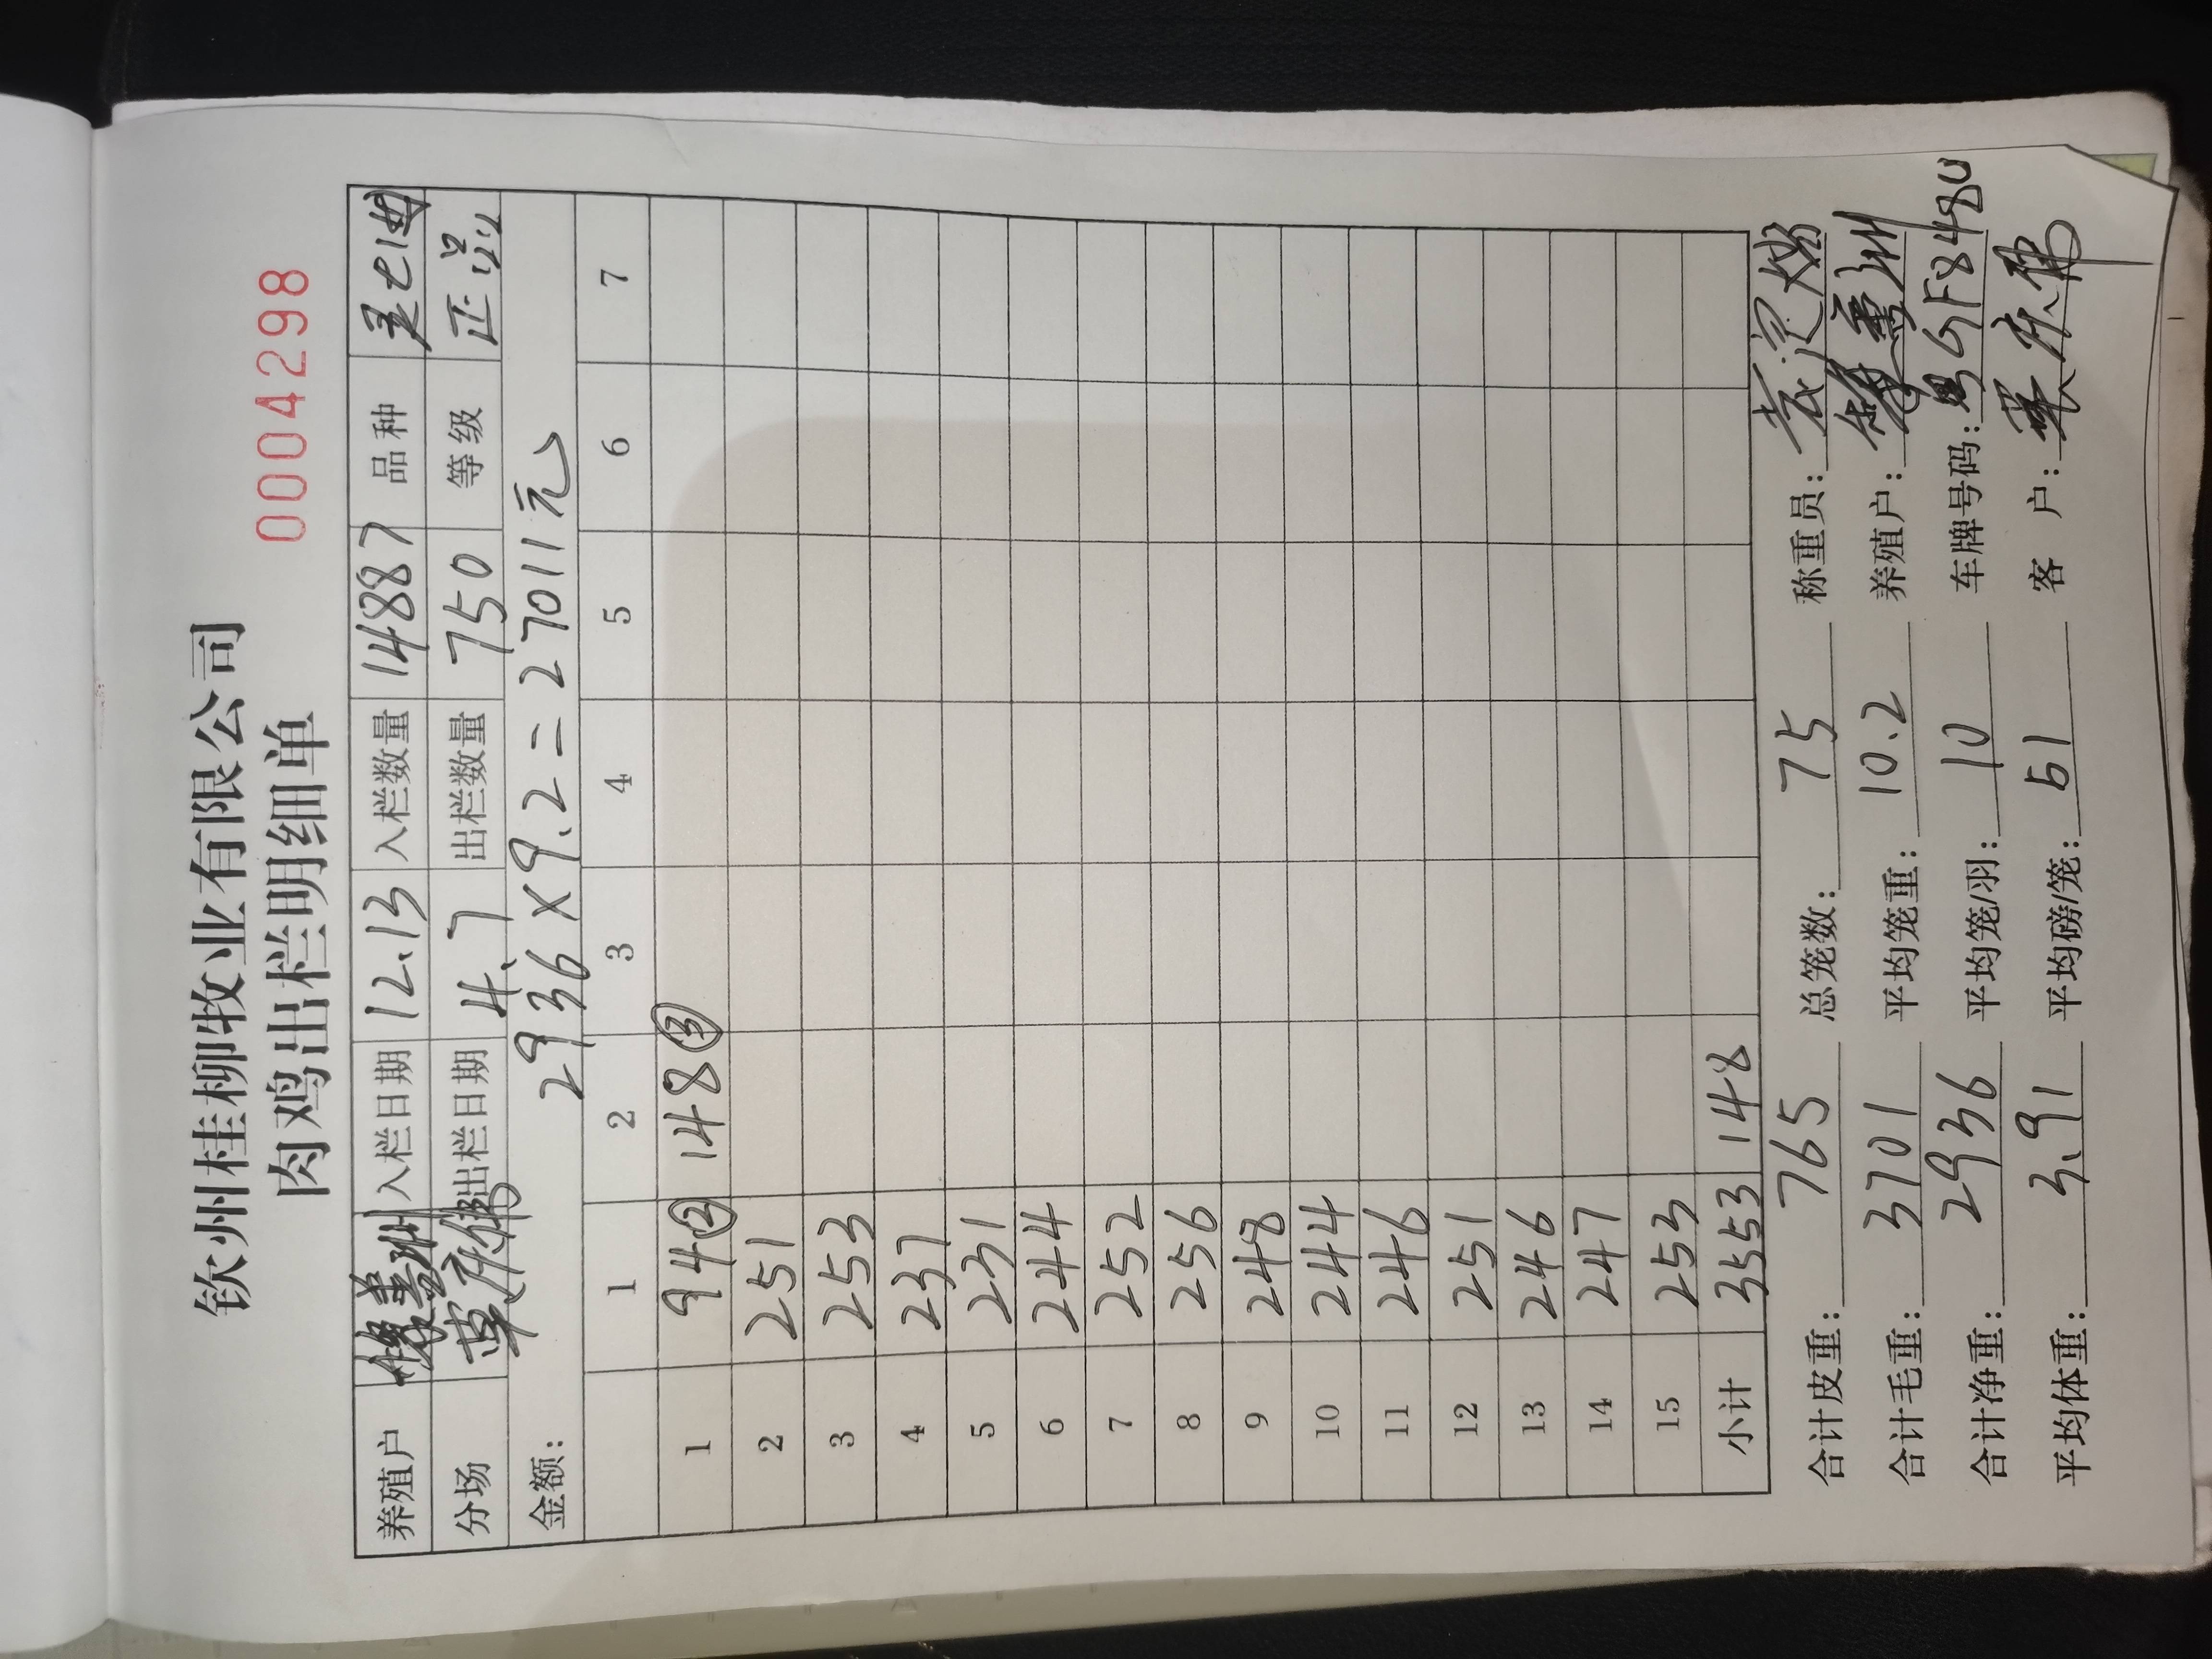 钦州桂柳牧业有限公司
肉鸡出栏明细单
0004298
养殖户 入栏日期 12.13 入栏数量 14887 品种
分场 出栏日期 4.7 出栏数量 750 等级 正品
金额: 2936×9.2=27011元
1 2 3 4 5 6 7
1 94② 148③
2 251
3 253
4 237
5 231
6 244
7 252
8 256
9 248
10 244
11 246
12 251
13 246
14 247
15 253
小计 3553 148
合计皮重: 765 总笼数: 75 称重员:
合计毛重: 3701 平均笼重: 10.2 养殖户:
合计净重: 2936 平均笼/羽: 10 车牌号码: 粤GF848U
平均体重: 3.91 平均磅/笼: 51 客 户: